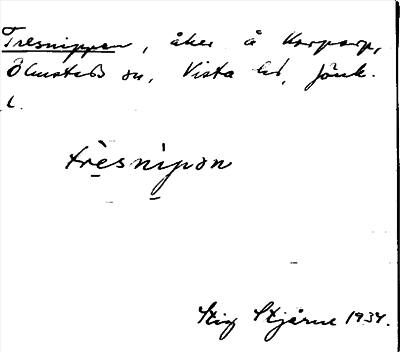 Tresnippen, åker å Korparp,
Ölmstads sn, Vista hd, Jönk.
l.
trèsnìpən
Stig Stjärne 1934.